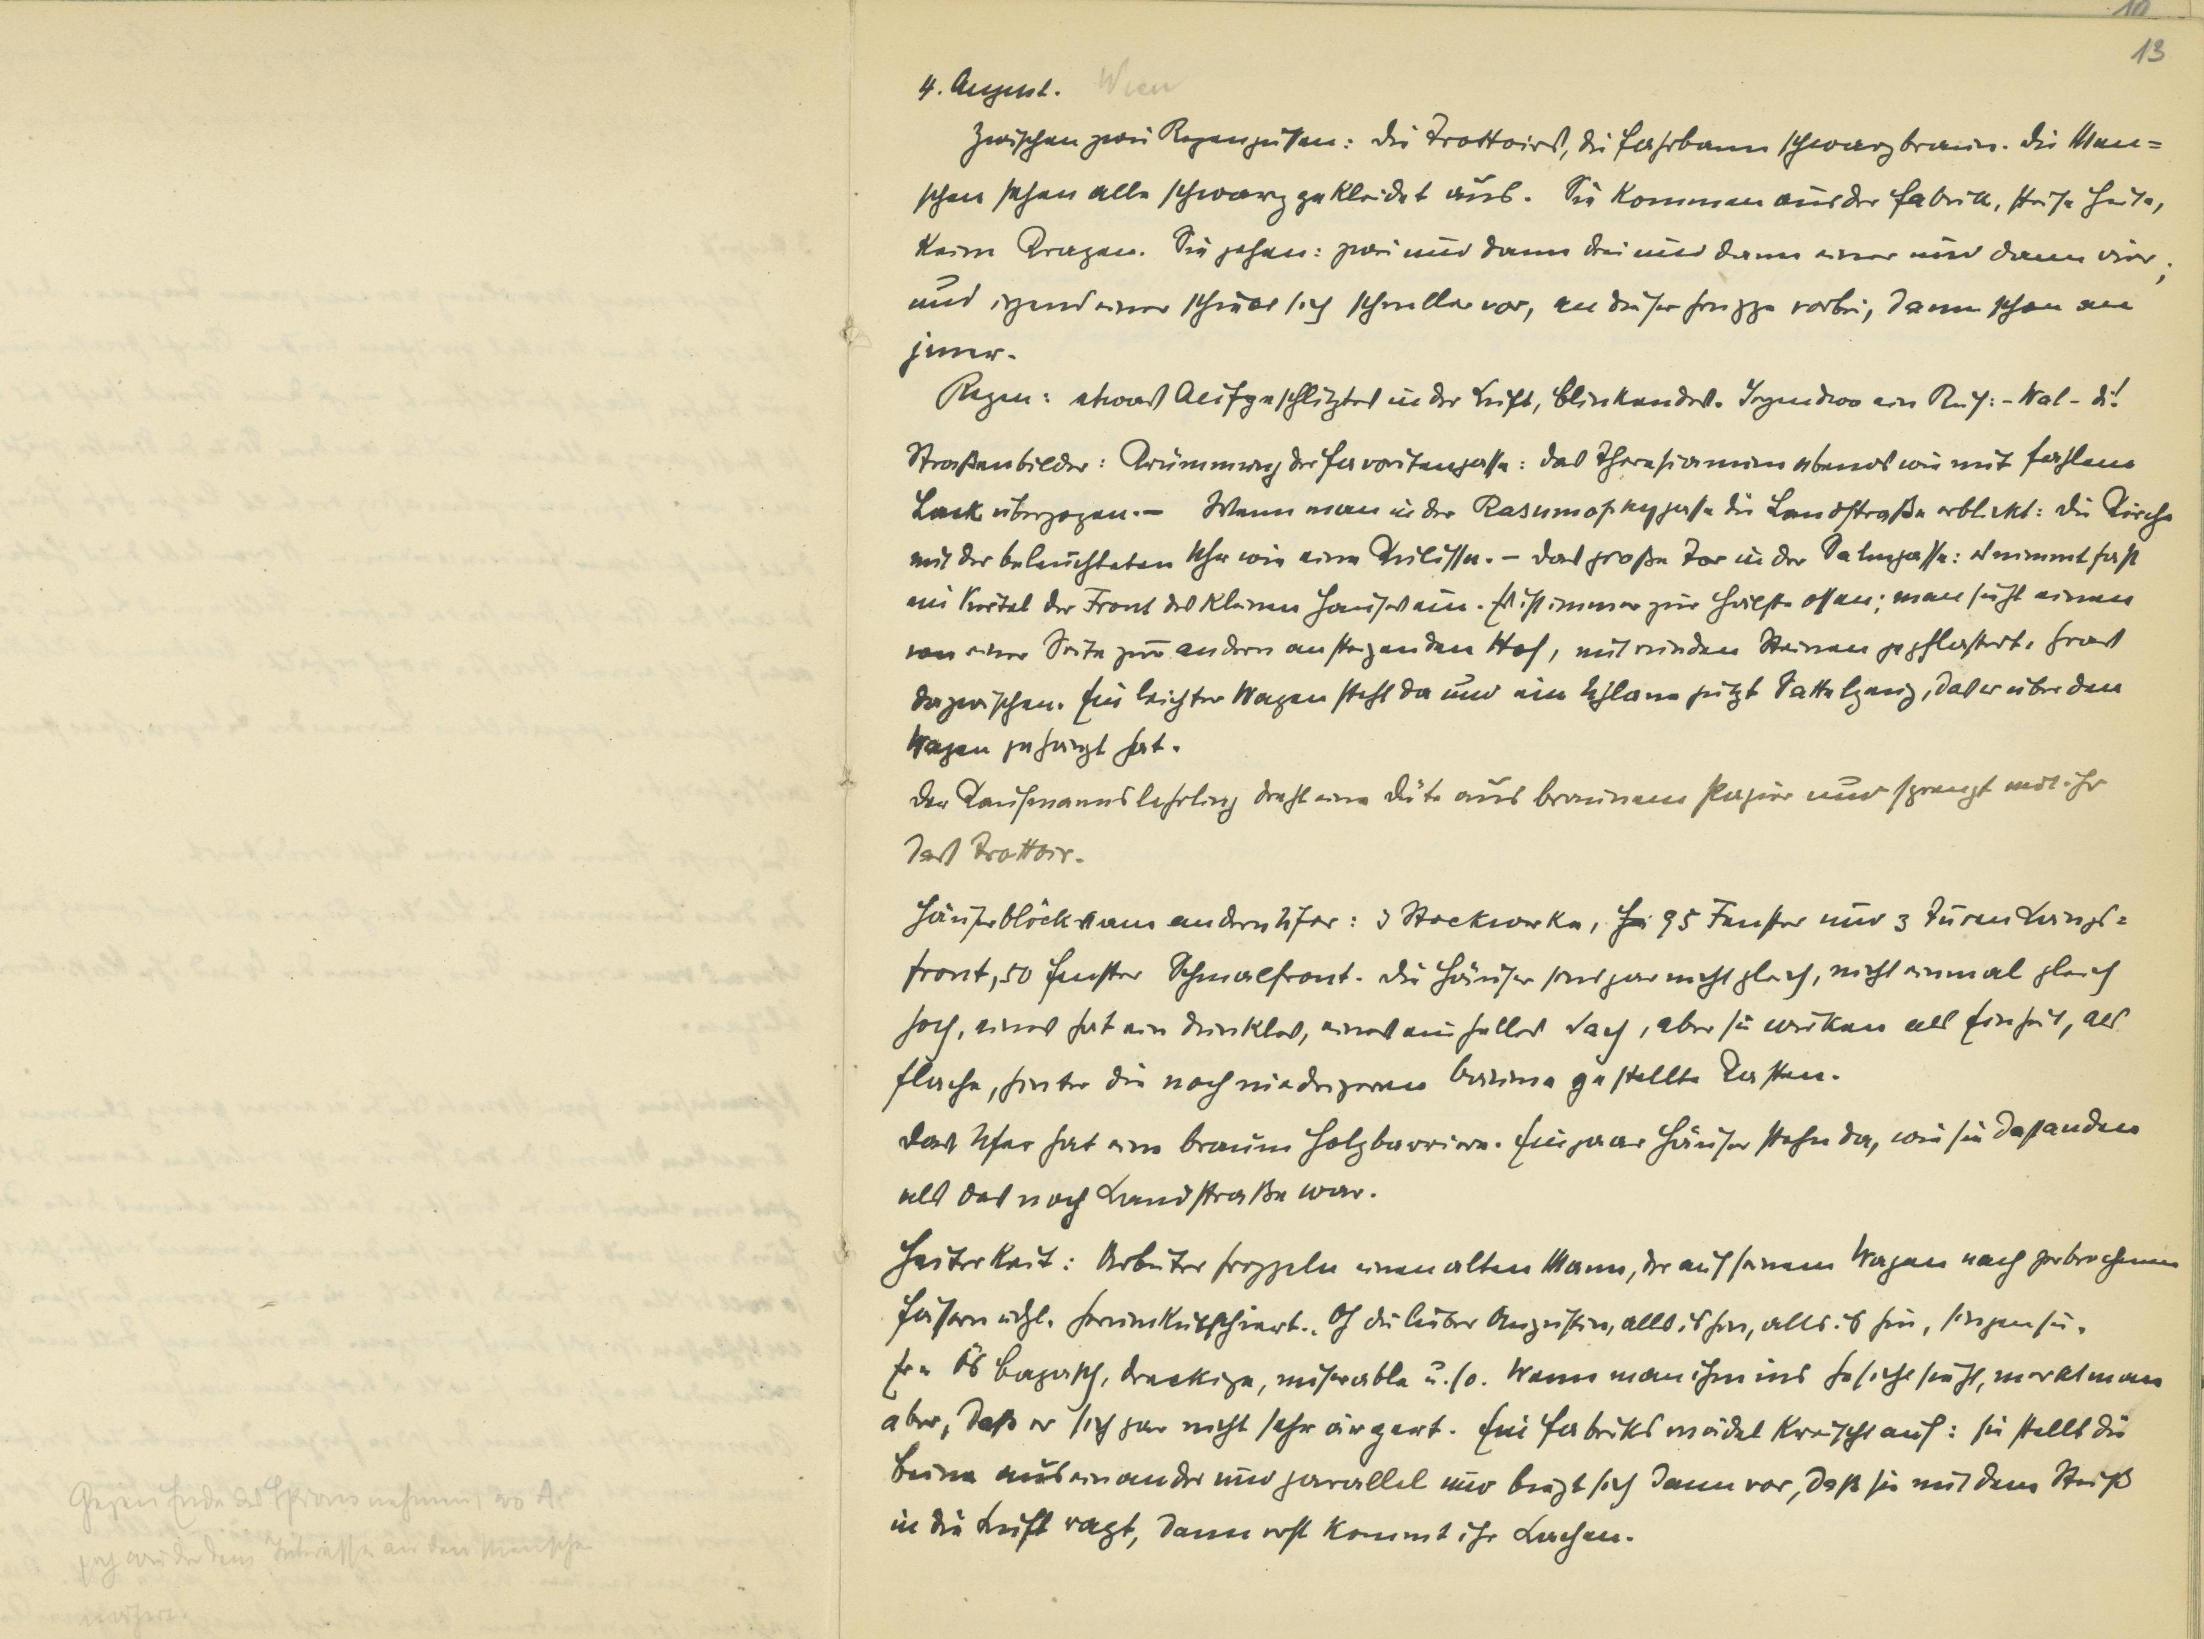 10
13
4. August. Wien
Zwischen zwei Regengüssen: die Trottoirs, die Fahrbann schwarzbraun. Die Men=
schen sehen alle schwarz gekleidet aus. Sie kommen aus der Fabrik, steife Hüte,
keine Kragen. Sie gehen: zwei und dann drei und dann einer und dann vier;
und irgend einer schiebt sich schneller vor, an dieser Gruppe vorbei, dann schon an
jener.
Regen: etwas Aufgeschlitztes in der Luft, blinkendes. Irgendwo ein Ruf: - Wal - di!
Straßenbilder: Krümmung der Favoritengasse: das Theresianum abends wie mit fahlem
Lack überzogen. – Wenn man in der Rasumofskygasse die Landstraße erblickt: die Kirche
mit der beleuchteten Uhr wie eine Kulisse. – Das große Tor in der Salmgasse: es nimmt fast
ein Viertel der Front des kleinen Hauses ein. Es ist immer zur Hälfte offen; man sieht einen
von einer Seite zur andern ansteigenden Hof, mit runden Steinen gepflastert. Gras
dazwischen. Ein leichter Wagen steht da und ein Uhlane putzt Sattelzeug, das er über den
Wagen gehängt hat.
Der Kaufmannslehrling dreht eine Düte aus braunem Papier und sprengt mit ihr
das Trottoir.
Häuserblöcke am andern Ufer: 3 Stockwerke, 95 Fenster und 3 Türen Längs=
front, 50 Fenster Schmalfront. Die Häuser sind gar nicht gleich, nicht einmal gleich
hoch, eines hat ein dunkles, eines ein helles Dach, aber sie wirken als Einheit, als
flache, hinter die noch niedrigeren Bäume gestellte Kasten.
Das Ufer hat eine braune Holzbarriere. Ein paar Häuser stehn da, wie sie dastanden
als das noch Landstraße war.
Heiterkeit: Arbeiter frozzeln einen alten Mann, der auf seinem Wagen nach zerbrochenen
Fässern udgl. herumkutschiert. Oh du lieber Augustin, alls is hin, alls is hin, singen sie.
Er: Ös Bagasch, dreckige, miserable u. so. Wenn man ihm ins Gesicht sieht, merkt man
aber, daß er sich gar nicht sehr ärgert. Ein Fabriksmädel kreischt auf: sie stellt die
Beine auseinander und parallel und beugt sich dann vor, daß sie mit dem Steiß
in die Luft ragt, dann erst kommt ihr Lachen.
Gegen Ende des Spions nehmen, wo A.
sich wieder dem Interesse an den Menschen
nähert.